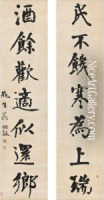 民不饑寒為上瑞
酒餘歡適似還鄉